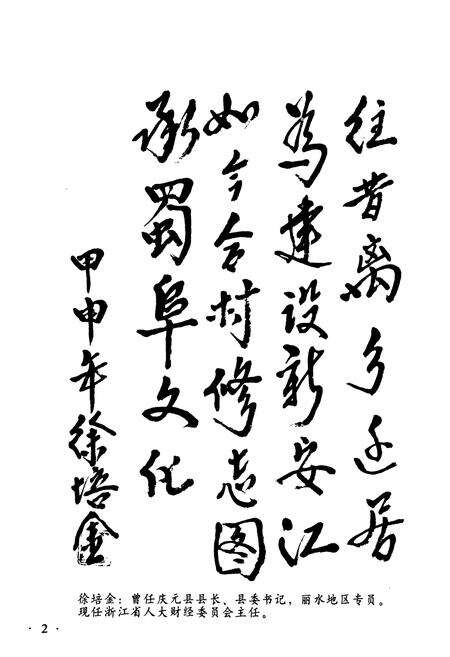 往昔离乡迁居
为建设新安江
如今合村修志图
承蜀阜文化
甲申年徐培金
徐培金：曾任庆元县县长、县委书记，丽水地区专员。
现任浙江省人大财经委员会主任。
· 2 ·